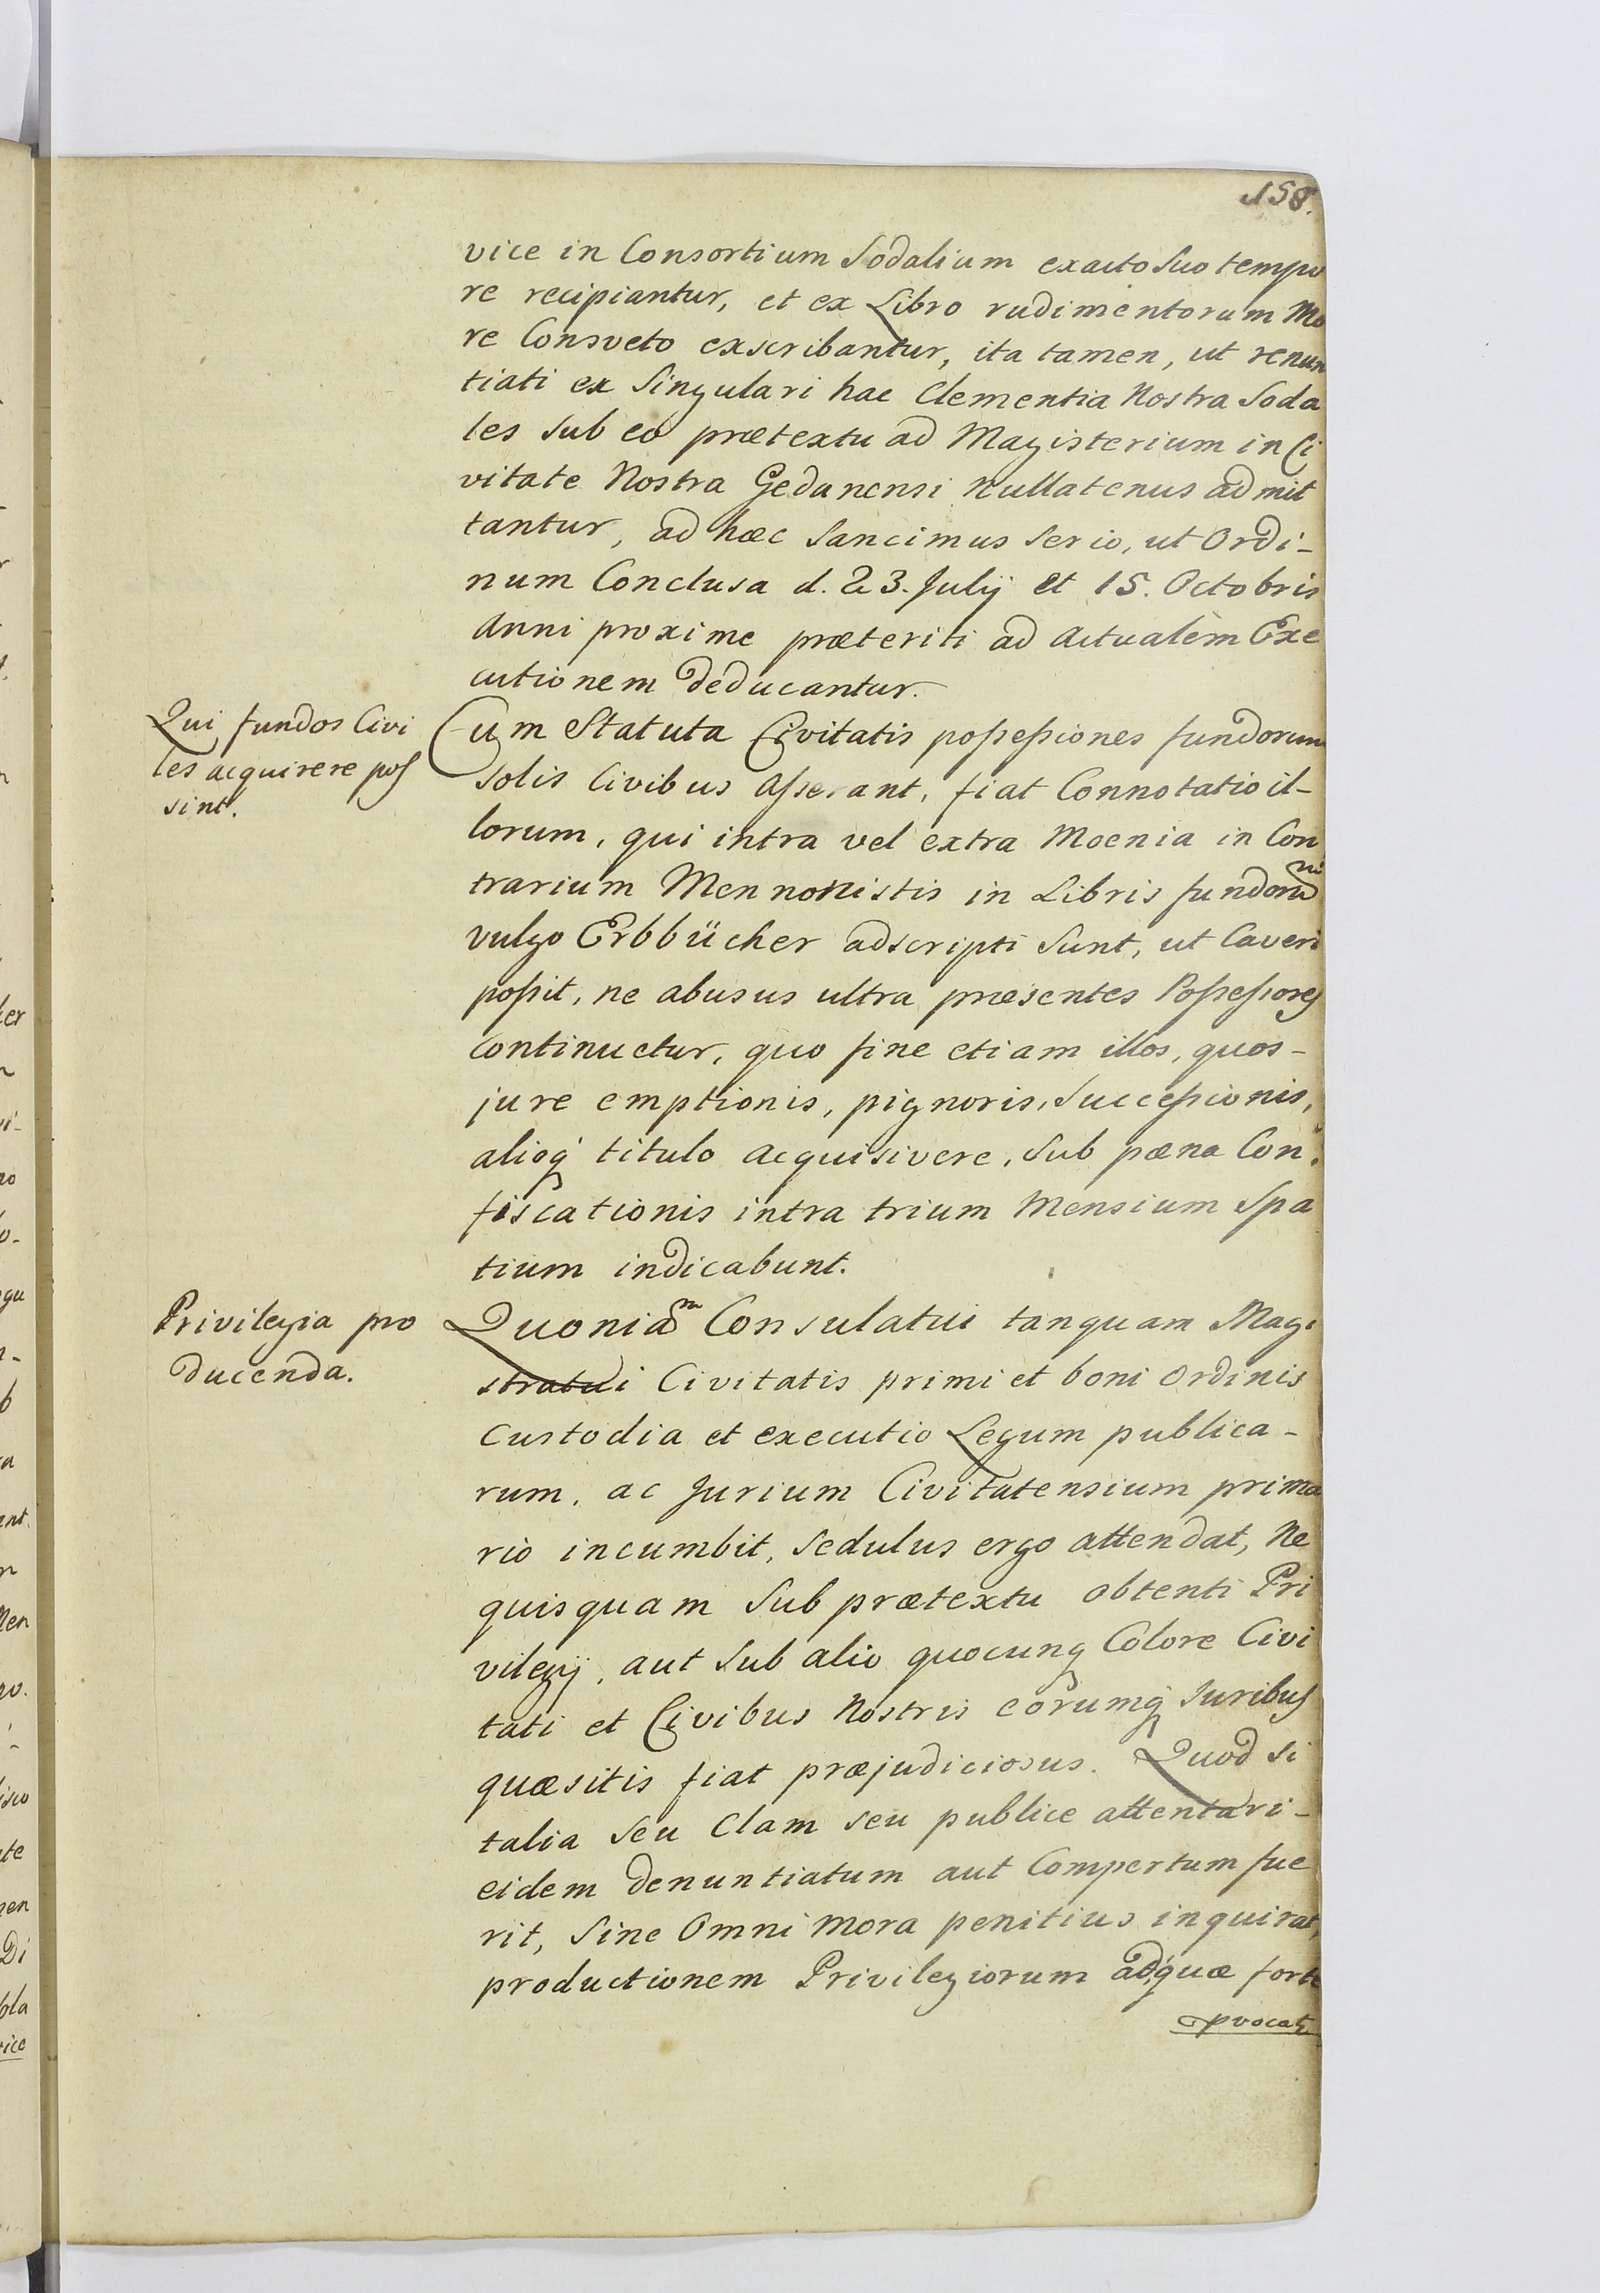 158.
vice in Consortium Sodalium exacto Suo tempo
re recipiantur, et ex Libro rudimentorum Mo
re Consveto exscribantur, ita tamen, ut renun
tiati ex Singulari hac Clementia Nostra Soda
les Sub eo prætextu ad Magisterium in Ci
vitate Nostra Gedanensi Nullatenus admit
tantur, ad hæc Sancimus Serio, ut Ordi-
num Conclusa d. 23. Julij et 15. Octobris
Anni proxime præteriti ad Actualem Exe
cutionem deducantur.
Qui fundos Civi
les acquirere pos
sint.
Cum Statuta Civitatis poßeßiones fundorum
Solis Civibus Aßerant, fiat Connotatio il-
lorum, qui intra vel extra Moenia in Con
trarium Mennonistis in Libris fundorũ
vulgo Erbbücher adscripti Sunt, ut Caveri
poßit, ne abusus ultra præsentes Poßeßores
Continuetur, quo fine etiam illos, quos-
jure emptionis, pignoris, Succeßionis,
alioq́ titulo acquisivere, Sub pæna Con-
fiscationis intra trium Mensium Spa
tium indicabunt.
Privilegia pro
ducenda.
Quoniam Consulatui tanquam Magi
stratui Civitatis primi et boni Ordinis
Custodia et executio Legum publica-
rum, ac Jurium Civitatensium prima
rio incumbit, Sedulus ergo attendat, Ne
quisquam Sub prætextu obtenti Pri
vilegij, aut Sub alio quocunq Colore Civi
tati et Civibus Nostris eorumq́ Juribus
quæsitis fiat præjudiciosus. Quod Si
talia Seu Clam Seu publice attentari-
eidem denuntiatum aut Compertum fue
rit, Sine Omni Mora penitius inquirat,
productionem Privilegiorum ad, quæ forte